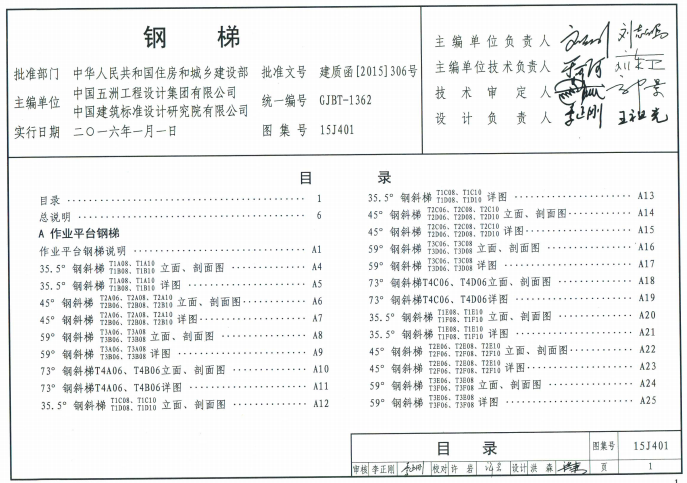 钢 梯
批准部门 中华人民共和国住房和城乡建设部 批准文号 建质函[2015]306号
主编单位 中国五洲工程设计集团有限公司 中国建筑标准设计研究院有限公司 统一编号 GJBT-1362
实行日期 二〇一六年一月一日 图集号 15J401
主编单位负责人
主编单位技术负责人
技术审定人
设计负责人 李正刚 王祖光
目 录
目录 1
总说明 6
A 作业平台钢梯
作业平台钢梯说明 A1
35.5° 钢斜梯 T1A08、T1A10 T1B08、T1B10 立面、剖面图 A4
35.5° 钢斜梯 T1A08、T1A10 T1B08、T1B10 详图 A5
45° 钢斜梯 T2A06、T2A08、T2A10 T2B06、T2B08、T2B10 立面、剖面图 A6
45° 钢斜梯 T2A06、T2A08、T2A10 T2B06、T2B08、T2B10 详图 A7
59° 钢斜梯 T3A06、T3A08 T3B06、T3B08 立面、剖面图 A8
59° 钢斜梯 T3A06、T3A08 T3B06、T3B08 详图 A9
73° 钢斜梯T4A06、T4B06立面、剖面图 A10
73° 钢斜梯T4A06、T4B06详图 A11
35.5° 钢斜梯 T1C08、T1C10 T1D08、T1D10 立面、剖面图 A12
35.5° 钢斜梯 T1C08、T1C10 T1D08、T1D10 详图 A13
45° 钢斜梯 T2C06、T2C08、T2C10 T2D06、T2D08、T2D10 立面、剖面图 A14
45° 钢斜梯 T2C06、T2C08、T2C10 T2D06、T2D08、T2D10 详图 A15
59° 钢斜梯 T3C06、T3C08 T3D06、T3D08 立面、剖面图 A16
59° 钢斜梯 T3C06、T3C08 T3D06、T3D08 详图 A17
73° 钢斜梯T4C06、T4D06立面、剖面图 A18
73° 钢斜梯T4C06、T4D06详图 A19
35.5° 钢斜梯 T1E08、T1E10 T1F08、T1F10 立面、剖面图 A20
35.5° 钢斜梯 T1E08、T1E10 T1F08、T1F10 详图 A21
45° 钢斜梯 T2E06、T2E08、T2E10 T2F06、T2F08、T2F10 立面、剖面图 A22
45° 钢斜梯 T2E06、T2E08、T2E10 T2F06、T2F08、T2F10 详图 A23
59° 钢斜梯 T3E06、T3E08 T3F06、T3F08 立面、剖面图 A24
59° 钢斜梯 T3E06、T3E08 T3F06、T3F08 详图 A25
目 录 图集号 15J401
审核 李正刚 校对 许岩 设计 洪森 页 1
1